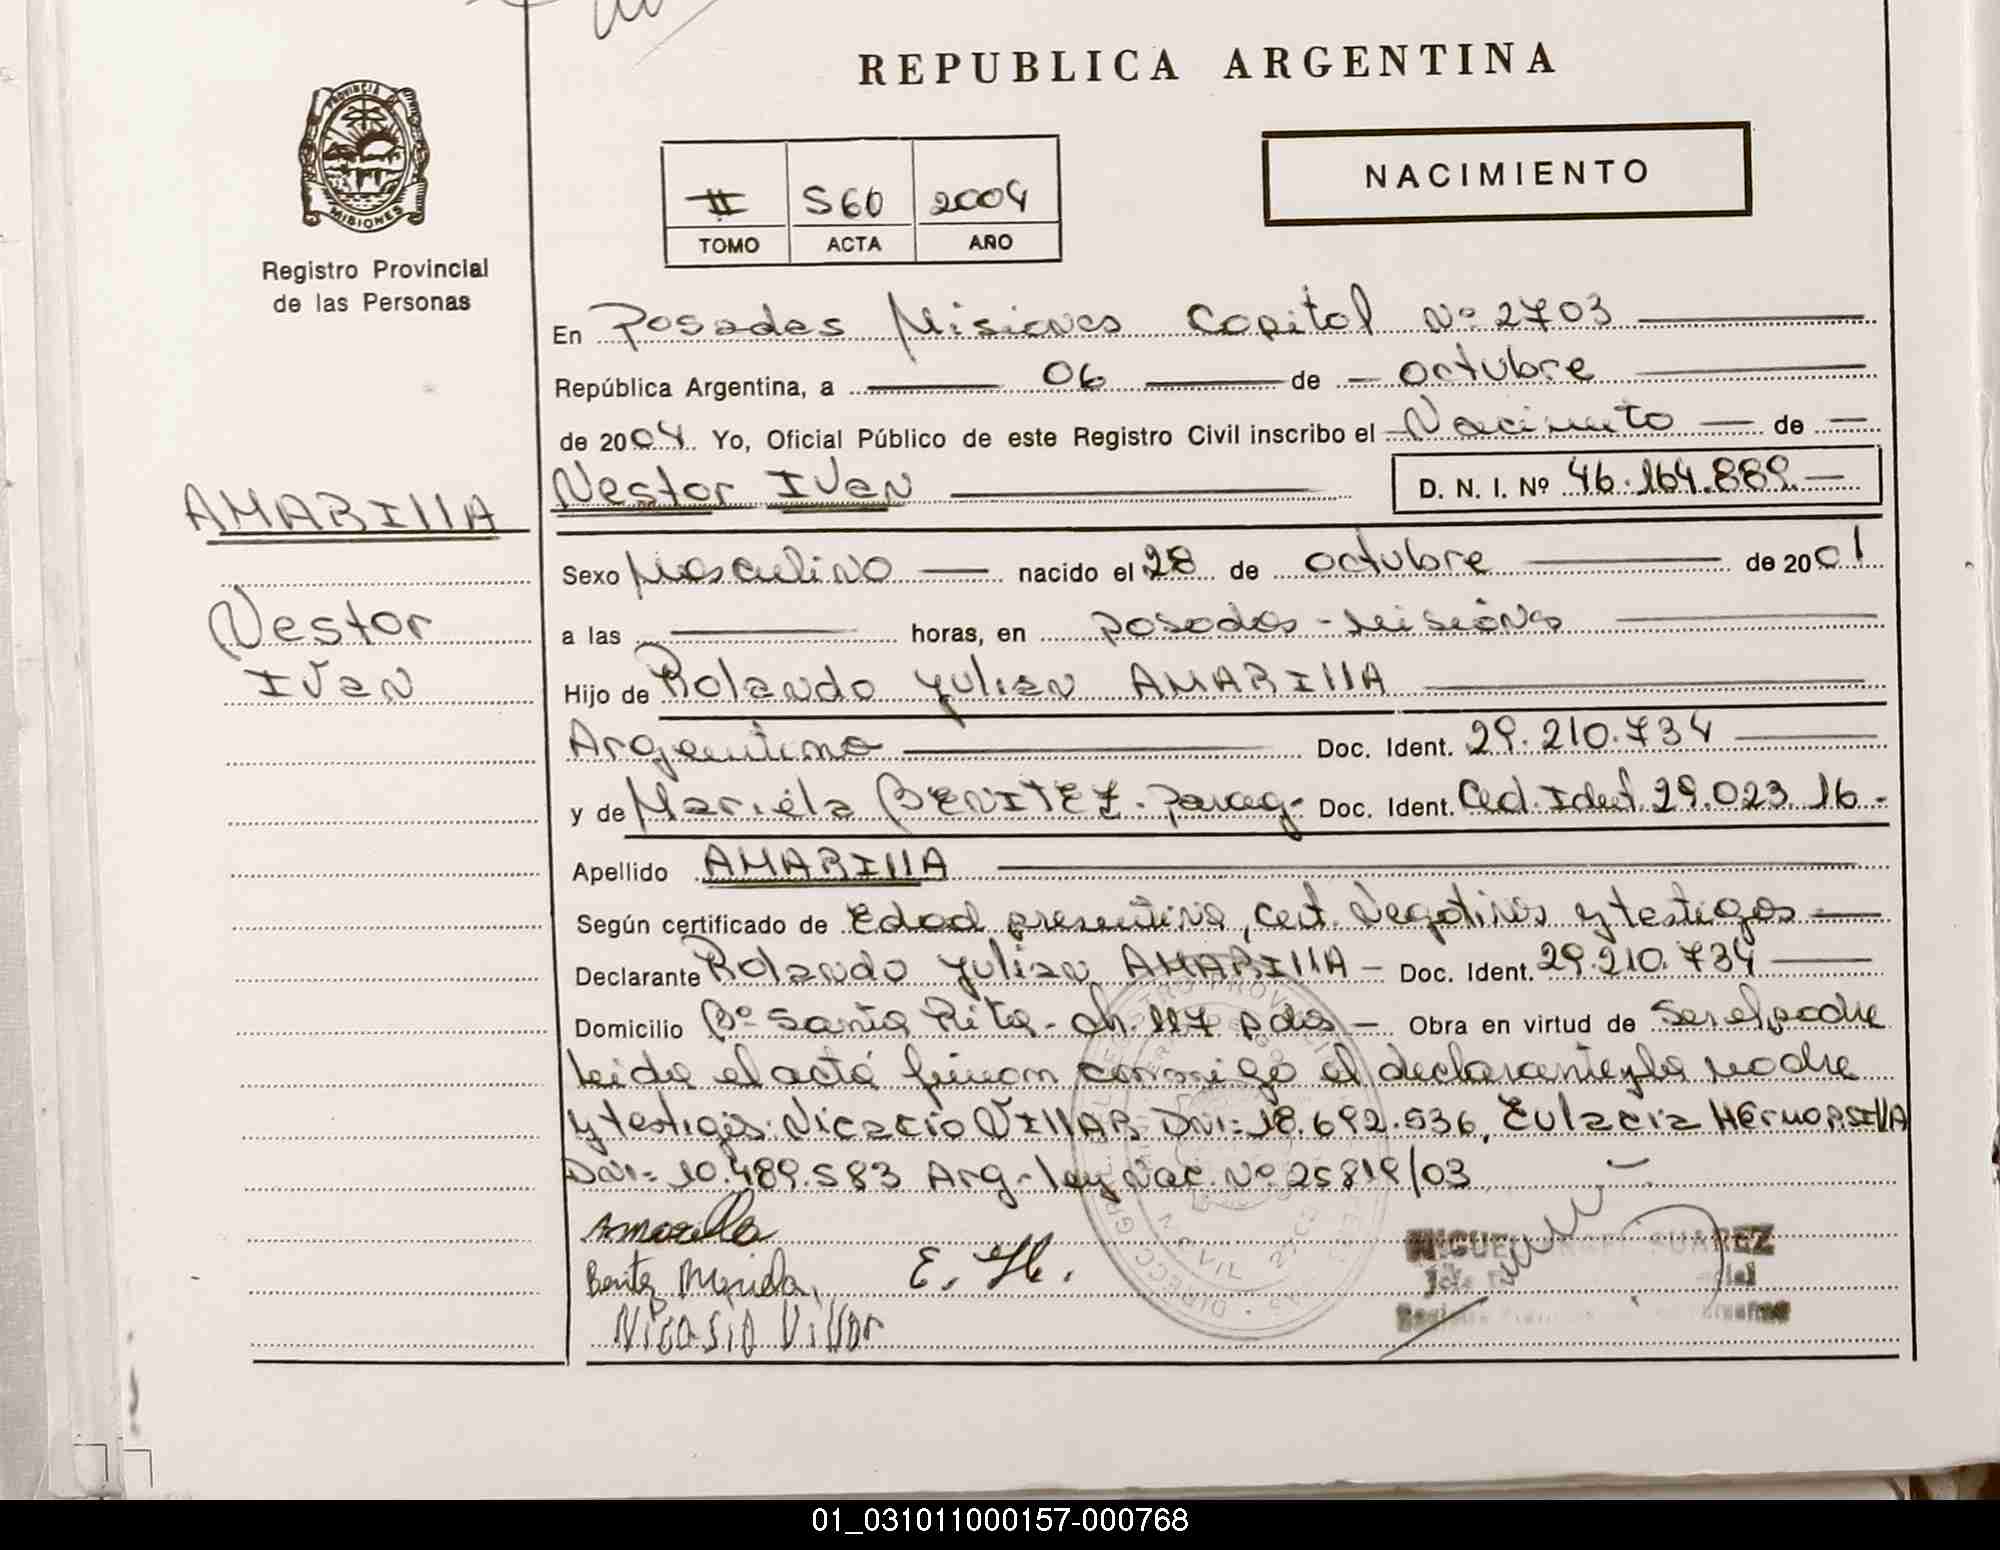 REPUBLICA ARGENTINA
PROVINCIA DE
MISIONES
Registro Provincial
de las Personas
NACIMIENTO
II S60 2004
TOMO ACTA AÑO
En Posadas Misiones Capital Nº 2703
República Argentina, a 06 de octubre
de 2004. Yo, Oficial Público de este Registro Civil inscribo el Nacimiento de
AMARIllA
Nestor Ivan D. N. I. Nº 46.164.889.-
Sexo Masculino nacido el 28 de octubre de 2001
Nestor
Ivan
a las horas, en posadas - Misiones
Hijo de Rolando Yulian AMARIllA
Argentino Doc. Ident. 29.210.734
y de Mariela BENITEZ. parag- Doc. Ident. Ced. Ident. 29.023.16-
Apellido AMARIllA
Según certificado de Edad presuntiva, Cert. Negativos y testigos
Declarante Rolando Yulian AMARIllA - Doc. Ident. 29.210.734
Domicilio Bº Santa Rita - ch. 117 pdas - Obra en virtud de Ser el padre
leida el acta firman conmigo el declarante y la madre
y testigos: Nicacio VIllAR Dni: 18.692.536, Eulacia HErmosIllA
Dni= 10.489.583 Arg- ley Nac. Nº 25819/03
Amarilla
Benitez Mariela E. H.
Nicasio Villar
MIGUEL ANGEL SUAREZ
01_031011000157-000768